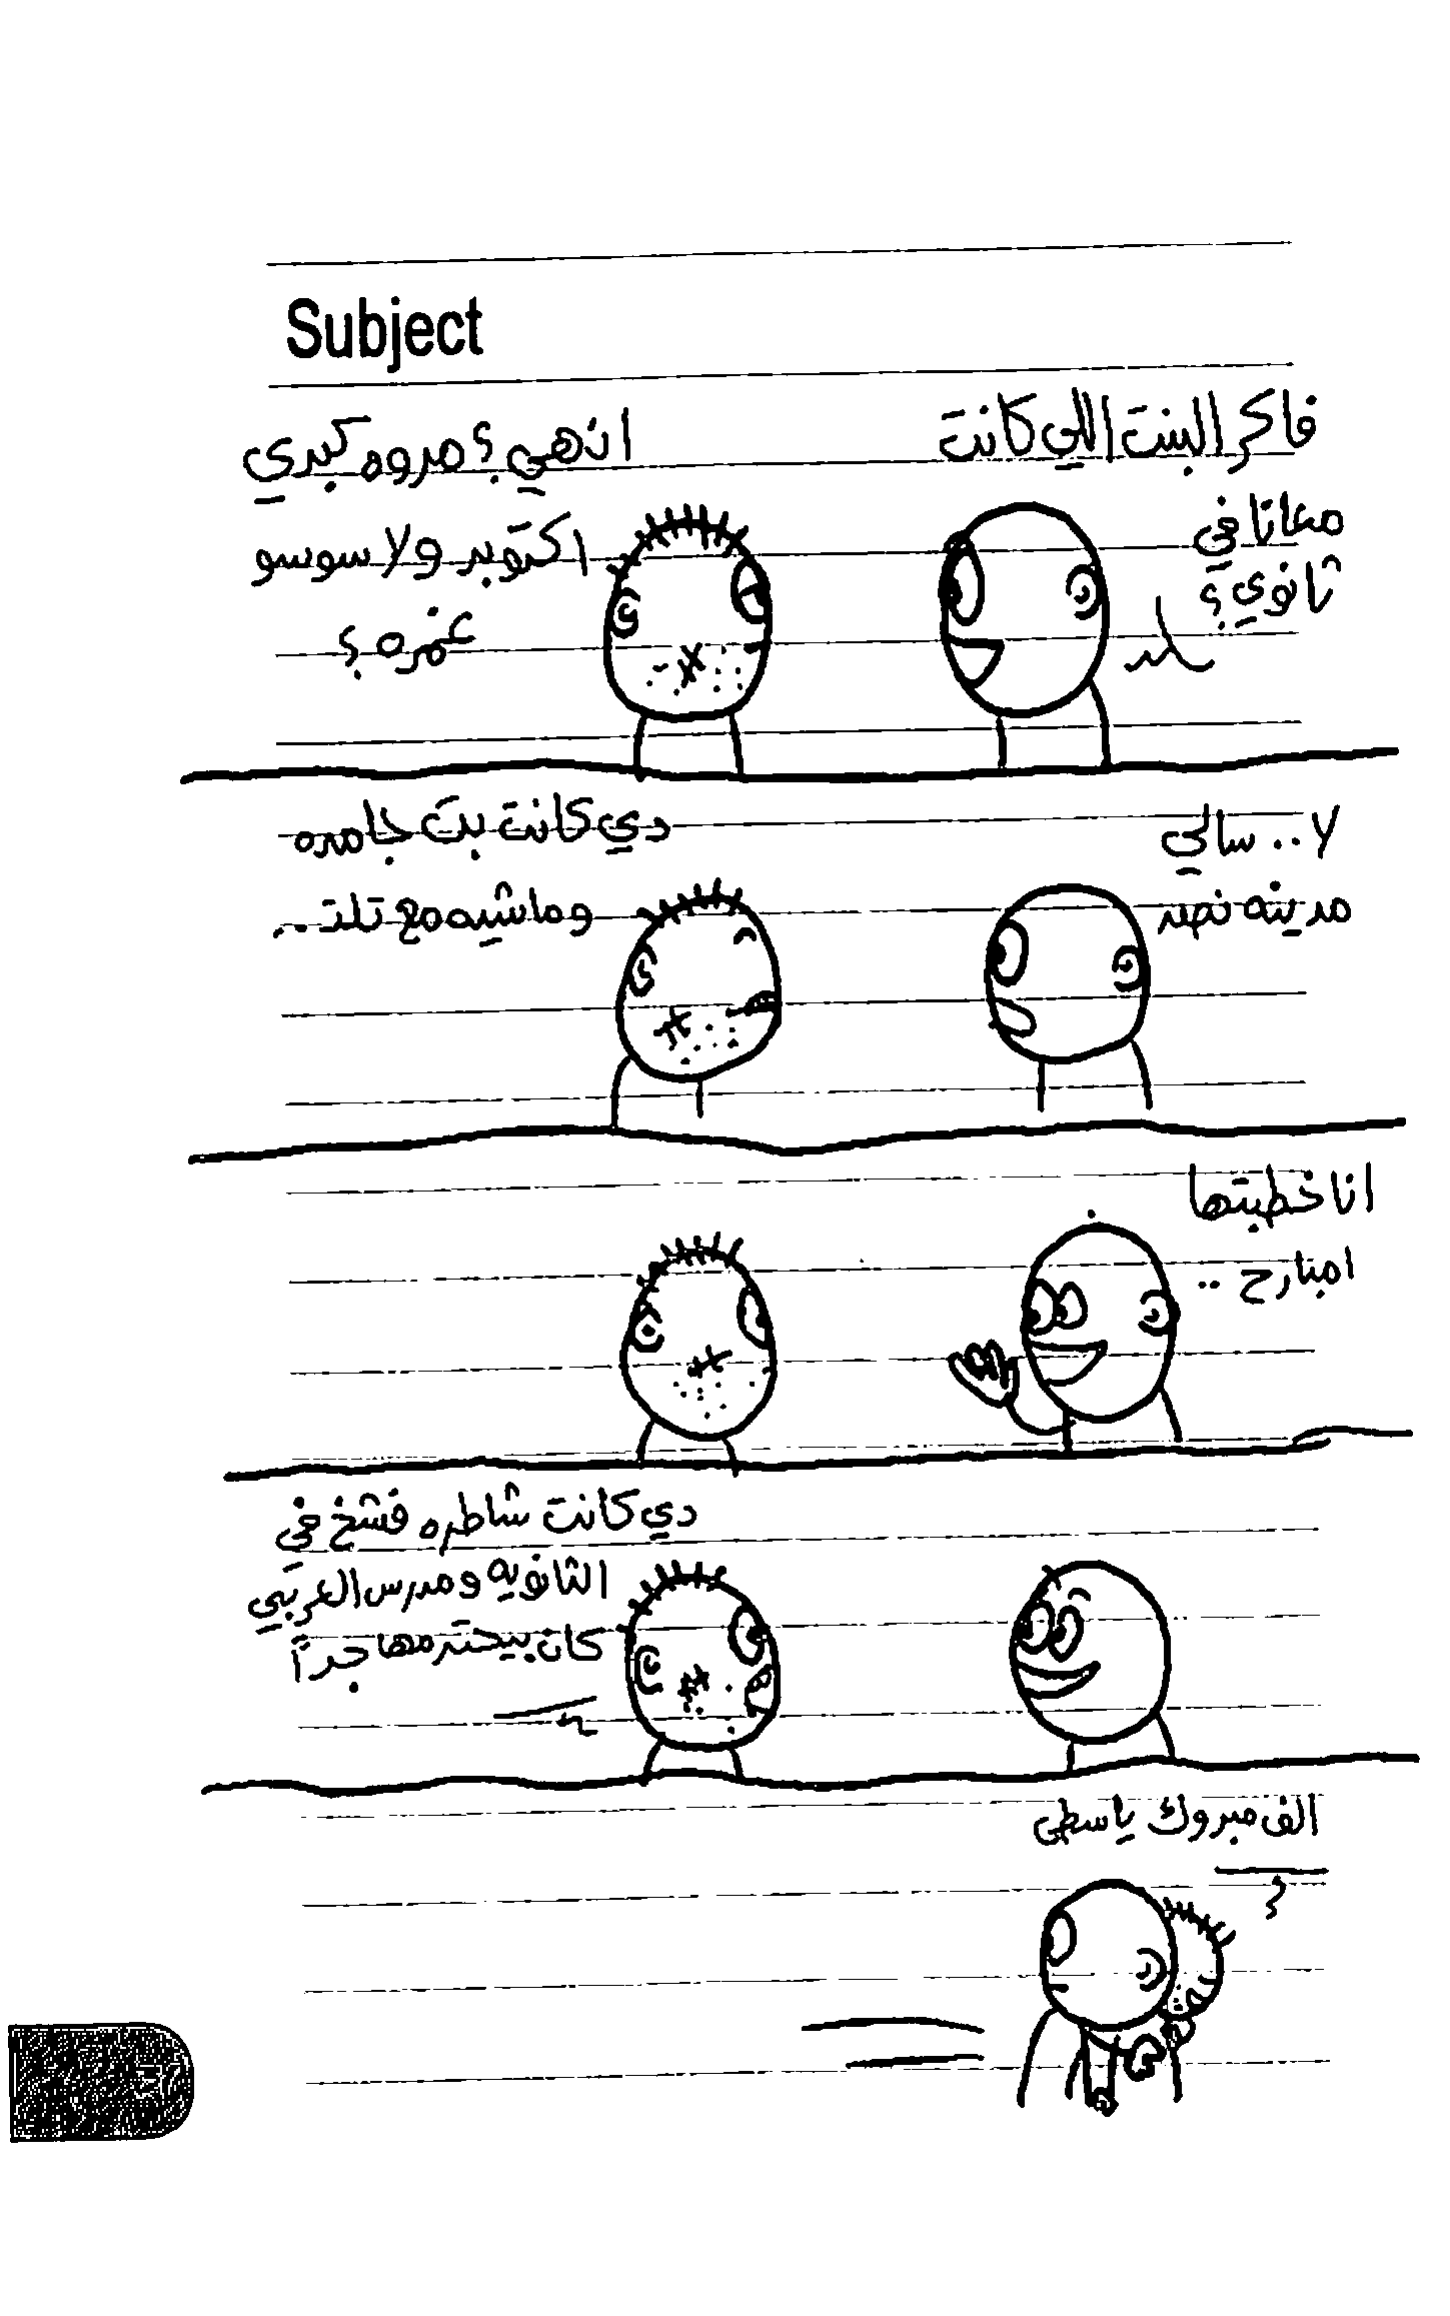 Subject
فاكر البنت اللي كانت
معانا في
ثانوي؟
انهي؟ مروه كبري
اكتوبر ولا سوسو
غمره؟
لا.. سالي
مدينه نصر
دي كانت بت جامده
وماشيه مع تلت..
انا خطبتها
امبارح..
دي كانت شاطره فشخ في
الثانويه ومدرس العربي
كان بيحترمها جداً
الف مبروك ياسطي